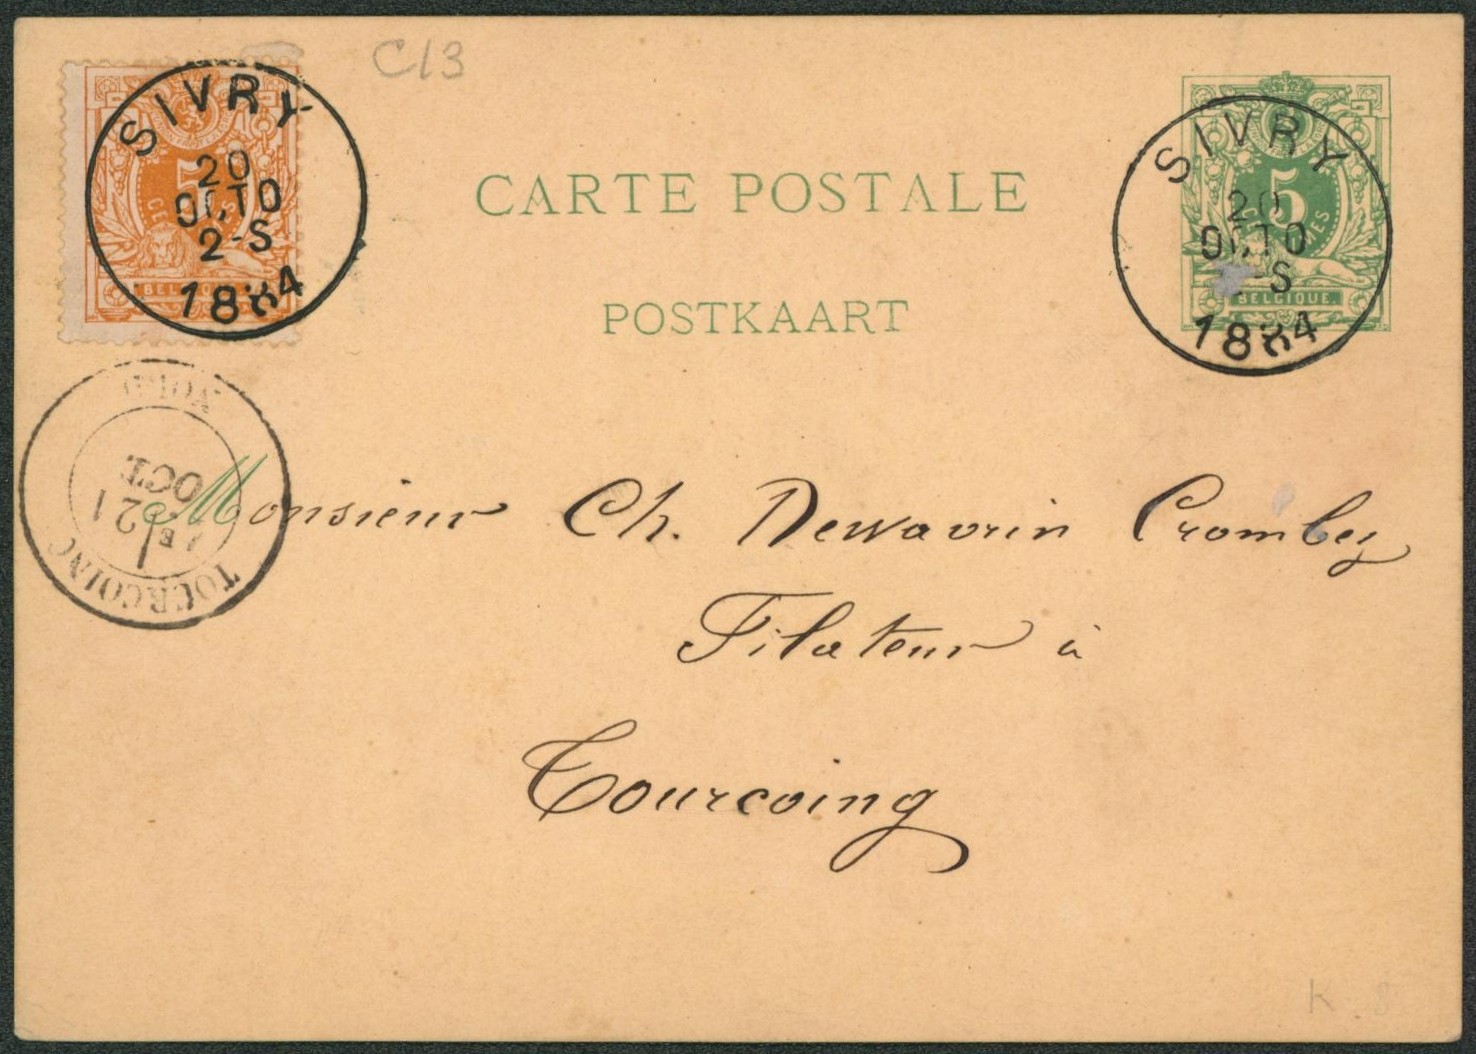 C13
SIVRY
20
OCTO
2-S
1884
5
CENTIMES
BELGIQUE
CARTE POSTALE
POSTKAART
SIVRY
20
OCTO
S
1884
5
CENTIMES
BELGIQUE.
21
OCT.
TOURCOING
Monsieur Ch. Dewavrin Crombez
Filateur à
Tourcoing
K